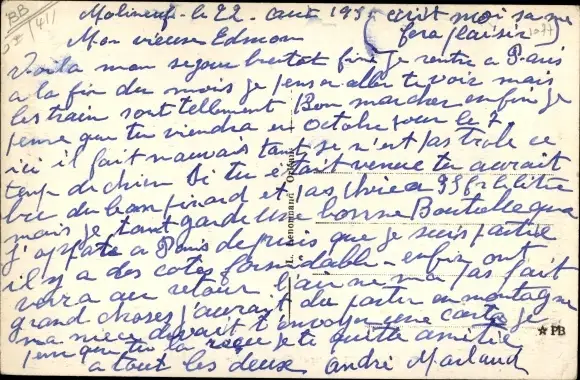 BB
(41)
Molineuf - le 22 aout 195 (ecrit moi sa me
fera plaisir)
Mon vieux Edmon
Voila mon sejour bientot fini je rentre a Paris
a la fin du mois je pense aller te voir mais
les train sont tellement Bon marcher enfin je
pense que tu viendra en Octobre pour le 7.
ici il fait mauvais tant se n'est pas trole ce
temp de chien Si tu etait venue tu aurait
bu du bon pinard et pas chere a 95f le litre
mais je t'ant garde une bonne Bouteille que
j'apporte a Paris depuis que je suis partie
il y a des cotes formidable - enfin ont
vera au retour l'air ne ma pas fait
grand choses j'aurait du partir en montagne
ma niece devait t envoyer une carte je
pense que tu la reçue je te quitte amitie
a tout les deux andré Marlaud
L. Lenormand Orléans
★ PB